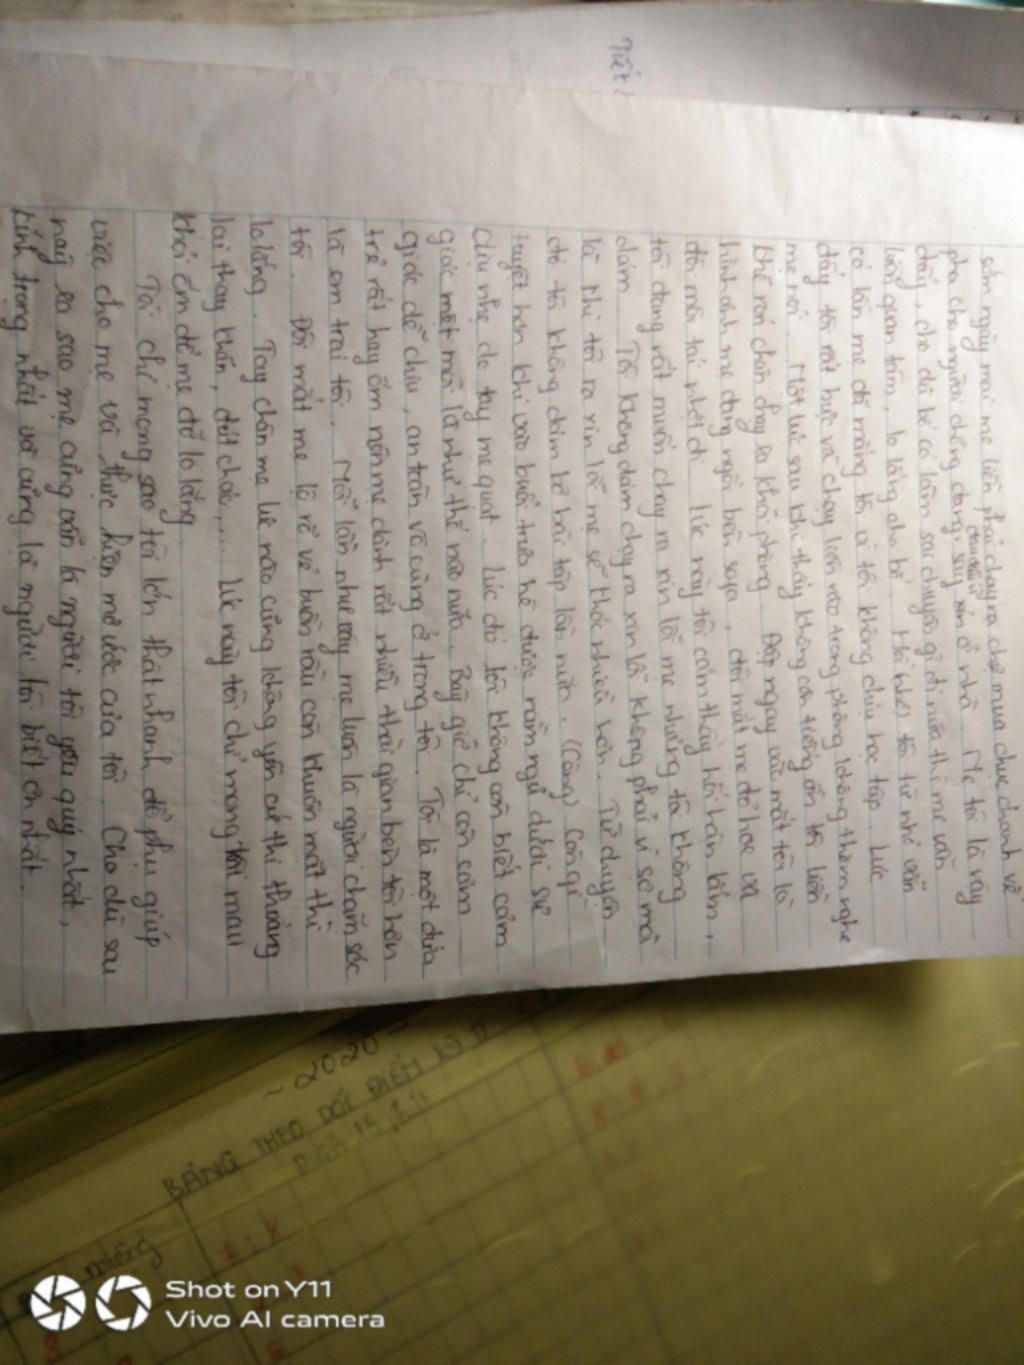 Tiết
sớm ngày mai mẹ liền phải chạy ra chợ mua chục chanh về
pha cho người chồng đang say xỉn ở nhà. Mẹ tôi là vậy
đấy, cho dù bố có làm sai chuyện gì đi nữa thì mẹ vẫn
luôn quan tâm, lo lắng cho bố. Hồi nhỏ, tôi
có lần mẹ đã mắng tôi vì tôi không chịu học tập. Lúc
đấy tôi rất bực và chạy luôn vào trong phòng không thèm nghe
mẹ nói. Một lúc sau khi thấy không còn tiếng ồn tôi liền
khẽ rón chân chạy ra khỏi phòng. Đập ngay vào mắt tôi là
hình ảnh mẹ đang ngồi bên sopa, đôi mắt mẹ đỏ hoe và
đôi môi tái nhợt đi. Lúc này tôi cảm thấy hối hận lắm,
tôi đang rất muốn chạy ra xin lỗi mẹ nhưng tôi không
dám. Tôi không dám chạy ra xin lỗi không phải vì sợ mà
là khi tôi ra xin lỗi mẹ sẽ khóc nhiều hơn. Từ chuyện
đó tôi không dám bỏ bài tập lần nữa. Còn gì
tuyệt hơn khi vào buổi trưa hè được nằm ngủ dưới sự
dịu nhẹ do tay mẹ quạt. Lúc đó tôi không còn biết cảm
giác mệt mỏi là như thế nào nữa. Bây giờ chỉ còn cảm
giác dễ chịu, an toàn vô cùng ở trong tôi. Tôi là một đứa
trẻ rất hay ốm nên mẹ dành rất nhiều thời gian bên tôi hơn
là em trai tôi. Mỗi lần như vậy mẹ luôn là người chăm sóc
tôi. Đôi mắt mẹ lộ rõ vẻ buồn rầu còn khuôn mặt thì
lo lắng. Tay chân mẹ lúc nào cũng không yên cứ thi thoảng
lại thay khăn, đút cháo,... Lúc này tôi chỉ mong tôi mau
khỏi ốm để mẹ đỡ lo lắng
Tôi chỉ mong sao tôi lớn thật nhanh để phụ giúp
việc cho mẹ và thực hiện mơ ước của tôi. Cho dù sau
này ra sao mẹ cũng vẫn là người tôi yêu quý nhất,
kính trọng nhất và cũng là người tôi biết ơn nhất.
~ 2020 ~
BẢNG THEO DÕI ĐIỂM KỲ II
Điểm 15 phút
miệng
Shot on Y11
Vivo AI camera